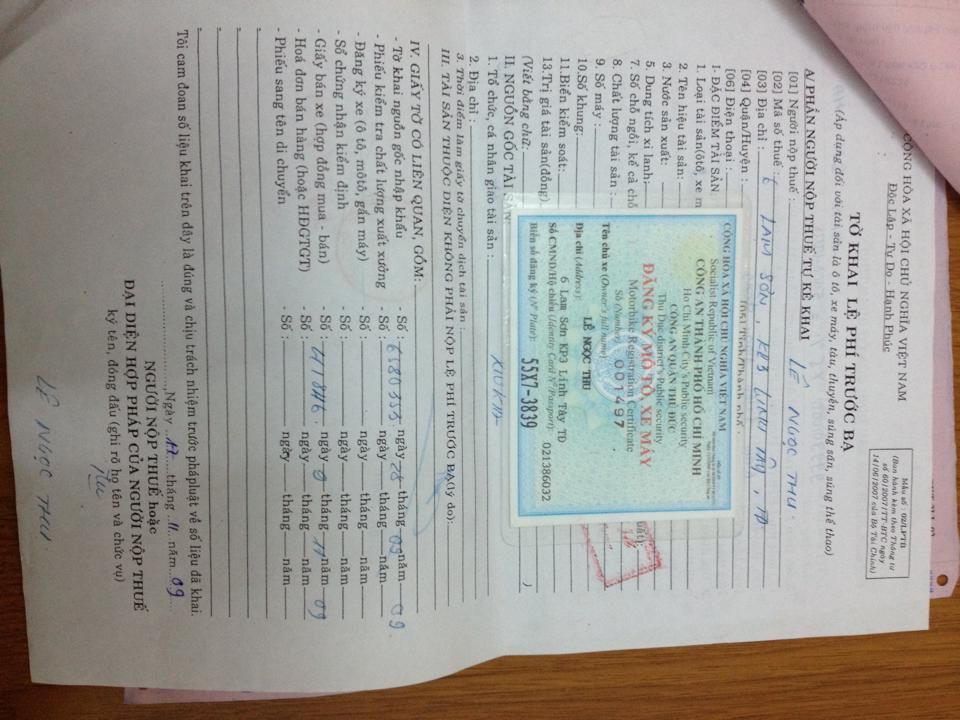 Mẫu số : 02/LPTB
(Ban hành kèm theo Thông tư
số 60/2007/TT-BTC ngày
14/06/2007 của Bộ Tài Chính)
CỘNG HÒA XÃ HỘI CHỦ NGHĨA VIỆT NAM
Độc Lập - Tự Do - Hạnh Phúc
TỜ KHAI LỆ PHÍ TRƯỚC BẠ
(Áp dụng đối với tài sản là ô tô, xe máy, tàu, thuyền, súng săn, súng thể thao)
A/ PHẦN NGƯỜI NỘP THUẾ TỰ KÊ KHAI
[01] Người nộp thuế : LÊ NGỌC THU
[02] Mã số thuế :
[03] Địa chỉ : 6 LAM SƠN, KP3 LINH TÂY, TĐ
[04] Quận/Huyện : [05] Tỉnh/Thành phố :
[06] Điện thoại :
I- ĐẶC ĐIỂM TÀI SẢN
1. Loại tài sản(ôtô, xe m
2. Tên hiệu tài sản:
3. Nước sản xuất:
5. Dung tích xi lanh:
7. Số chỗ ngồi, kể cả chỗ
8. Chất lượng tài sản :
9. Số máy :
10.Số khung:
11.Biển kiểm soát:
13.Trị giá tài sản(đồng)
(Viết bằng chữ: )
CỘNG HÒA XÃ HỘI CHỦ NGHĨA VIỆT NAM
Socialist Republic of Vietnam
CÔNG AN THÀNH PHỐ HỒ CHÍ MINH
Ho Chi Minh City's Public security
CÔNG AN QUẬN THỦ ĐỨC
Thu Duc district's Public security
ĐĂNG KÝ MÔ TÔ, XE MÁY
Motorbike Registration Certificate
Số (Number): 001497
Tên chủ xe (Owner's full name):
LÊ NGỌC THU
Địa chỉ (Address):
6 Lam Sơn KP3 Linh Tây TD
Số CMND/Hộ chiếu (Identity Card N°/Passport): 021386032
Biển số đăng ký (N° Plate): 55X7-3839
II. NGUỒN GỐC TÀI SẢN
1. Tổ chức, cá nhân giao tài sản :
2. Địa chỉ :
3. Thời điểm làm giấy tờ chuyển dịch tài sản :
III. TÀI SẢN THUỘC DIỆN KHÔNG PHẢI NỘP LỆ PHÍ TRƯỚC BẠ(lý do):
IV. GIẤY TỜ CÓ LIÊN QUAN, GỒM:
- Tờ khai nguồn gốc nhập khẩu - Số : ngày tháng năm
- Phiếu kiểm tra chất lượng xuất xưởng - Số : 680333 ngày 28 tháng 09 năm 09
- Đăng ký xe (ô tô, môtô, gắn máy) - Số : ngày tháng năm
- Sổ chứng nhận kiểm định - Số : ngày tháng năm
- Giấy bán xe (hợp đồng mua - bán) - Số : ngày tháng năm
- Hoá đơn bán hàng (hoặc HĐGTGT) - Số : ngày tháng 11 năm 09
- Phiếu sang tên di chuyển - Số : ngày tháng năm
Tôi cam đoan số liệu khai trên đây là đúng và chịu trách nhiệm trước pháp luật về số liệu đã khai.
Ngày 17 tháng 11 năm 09
NGƯỜI NỘP THUẾ hoặc
ĐẠI DIỆN HỢP PHÁP CỦA NGƯỜI NỘP THUẾ
ký tên, đóng dấu (ghi rõ họ tên và chức vụ)
Thu
LÊ NGỌC THU